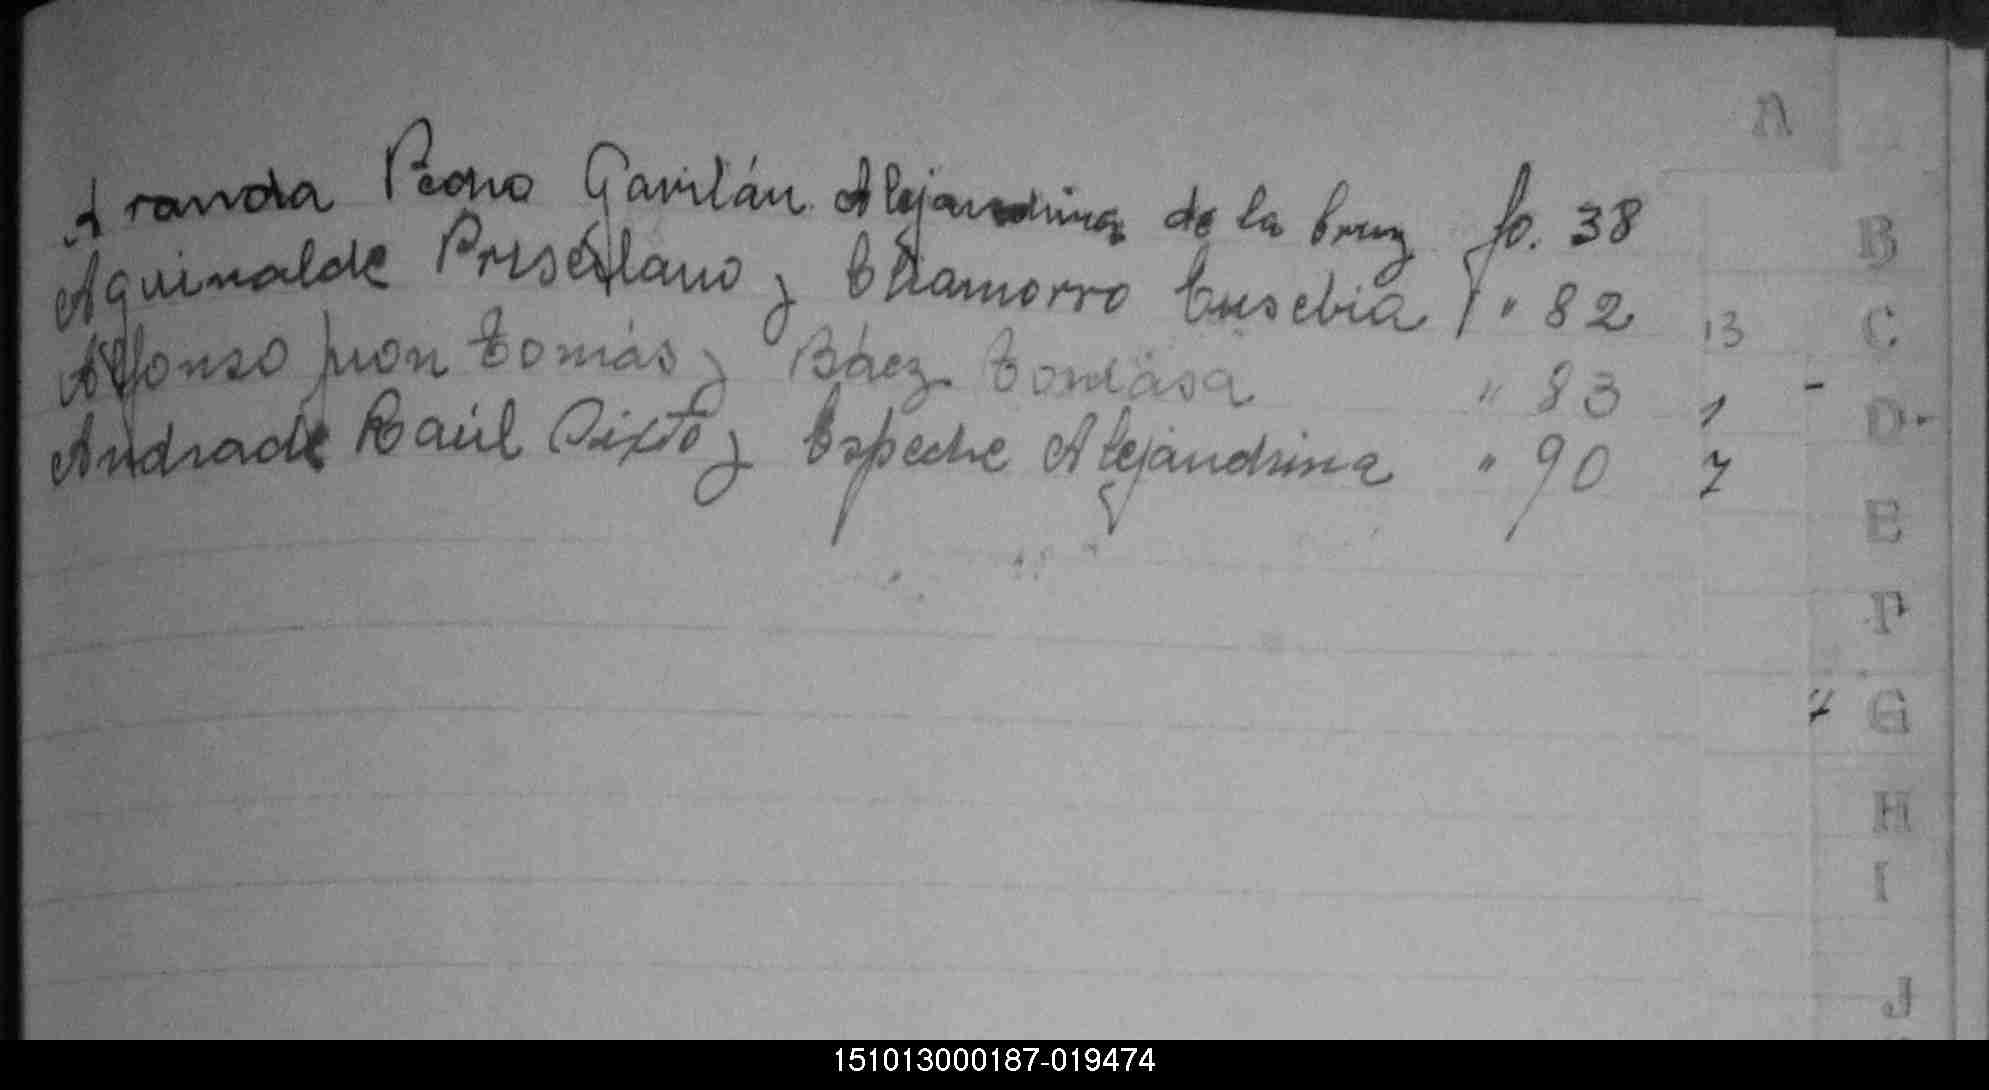 A
Aranda Pedro Gavilán Alejandrina de la Cruz fo. 38
Aguinalde Prisciliano y Chamorro Eusebia f " 82
Alfonso Juan Tomás y Báez Tomasa " 83
Andrade Raúl Sixto y Espeche Alejandrina " 90
13
1
7
B
C
D
E
F
7 G
H
I
J
151013000187-019474